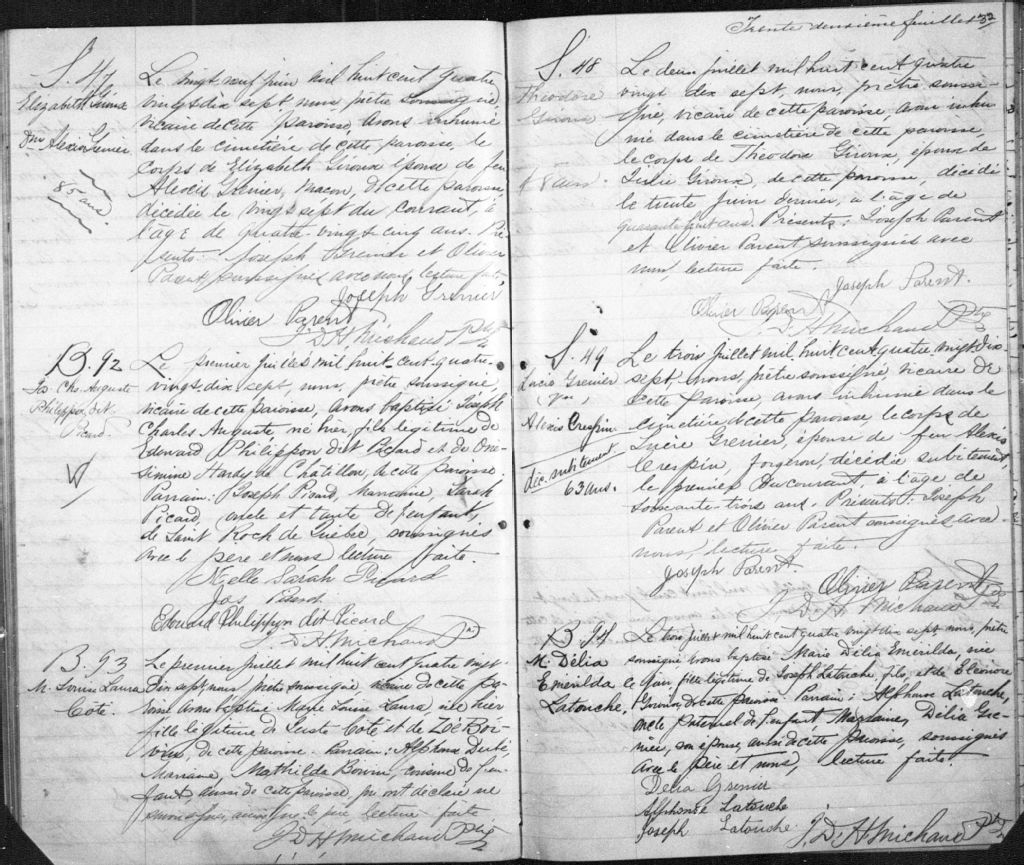 S. 47
Elizabeth Giroux
Dme Alexis Grenier
85 ans
Le vingt neuf juin mil huit cent quatre
vingt dix sept nous prêtre soussigné,
vicaire de cette paroisse, avons inhumé
dans le cimetière de cette paroisse, le
corps de Elizabeth Giroux épouse de feu
Alexis Grenier, macon, de cette paroisse
décédée le vingt sept du courant, à
l'âge de quatre-vingt cinq ans. Pré-
sents: Joseph Grenier et Olivier
Parent soussignés avec nous, lecture faite
Joseph Grenier
Olivier Parent
J. D. H. Michaud Ptre
B. 92
Jos. Chs. Auguste
Philippon dit
Picard.
Le premier juillet mil huit-cent-quatre-
vingt-dix-sept, nous, prêtre soussigné,
vicaire de cette paroisse, avons baptisé Joseph
Charles Auguste né hier, fils légitime de
Edouard Philippon dit Picard et de Oné-
simine Hardy de Châtillon, de cette paroisse.
Parrain: Joseph Picard, marraine, Sarah
Picard, oncle et tante de l'enfant,
de Saint Roch de Québec, soussignés
avec le père et nous lecture faite.
Melle Sarah Picard
Jos
Edouard Philippon dit Picard
J. D. H. Michaud Ptre
B. 93
M. Louise Laura
Coté.
Le premier juillet mil huit cent quatre vingt
dix sept, nous prêtre soussigné, vicaire de cette pa-
roisse avons baptisé Marie Louise Laura née hier
fille légitime de Juste Coté et de Zoé Boi-
vin, de cette paroisse. Parrain: Alphonse
Marraine, Mathilda Boivin, cousine de l'en-
fant, aussi de cette paroisse, qui ont déclaré ne
savoir signer, ainsi que le père, lecture faite
J. D. H. Michaud Ptre
Trente deuxième feuillet 32
S. 48
Théodore
Giroux
48 ans.
Le deux juillet mil huit cent quatre
vingt dix sept, nous, prêtre soussi-
gné, vicaire de cette paroisse, avons inhu-
mé dans le cimetière de cette paroisse,
le corps de Théodore Giroux, époux de
Julie Giroux, de cette paroisse, décédé
le trente juin dernier, à l'âge de
quarante-huit ans. Présents: Joseph Parent
et Olivier Parent soussignés avec
nous, lecture faite.
Joseph Parent.
Olivier Parent
J. D. H. Michaud Ptre
S. 49
Lucie Grenier
(Vve)
Alexis Crespin
déc. subitement
63 ans.
Le trois Juillet mil huit cent quatre vingt dix
sept, nous, prêtre soussigné, vicaire de
cette paroisse, avons inhumé dans le
cimetière de cette paroisse, le corps de
Lucie Grenier, épouse de feu Alexis
Crespin, forgeron, décédée subitement
le premier du courant, à l'âge de
soixante-trois ans. Présents: Joseph
Parent et Olivier Parent soussignés avec
nous, lecture faite.
Joseph Parent.
Olivier Parent
J. D. H. Michaud Ptre
B. 94
M. Délia
Emerilda
Latouche.
Le trois juillet mil huit cent quatre vingt dix sept nous, prêtre
soussigné avons baptisé Marie Délia Emerilda, née
le jour, fille légitime de Joseph Latouche, fils, et de Eléonore
de cette paroisse. Parrain: Alphonse Latouche,
oncle paternel de l'enfant Marraine, Délia Gre-
nier, son épouse, aussi de cette paroisse, soussignés
avec le père et nous, lecture faite.
Delia Grenier
Alphonse Latouche
Joseph Latouche
J. D. H. Michaud Ptre